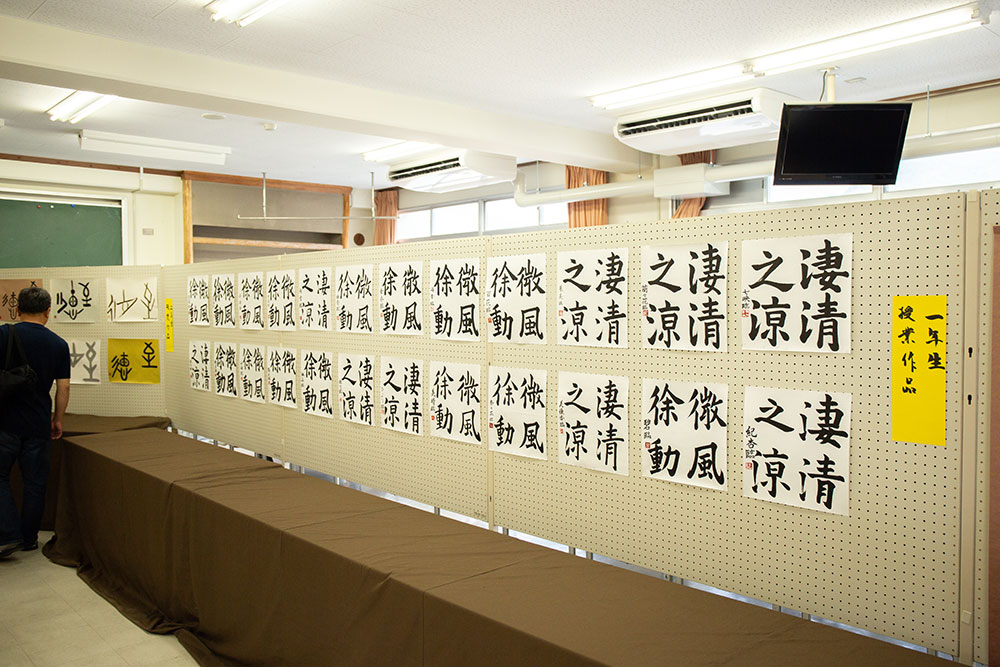 一年生
授業作品
淒清
之涼
淒清
之涼
淒清
之涼
微風
徐動
微風
徐動
微風
徐動
微風
徐動
淒清
之涼
微風
徐動
微風
徐動
微風
徐動
微風
徐動
淒清
之涼
紀杏臨
微風
徐動
碧臨
淒清
之涼
微風
徐動
微風
徐動
淒清
之涼
淒清
之涼
微風
徐動
微風
徐動
微風
徐動
微風
徐動
淒清
之涼